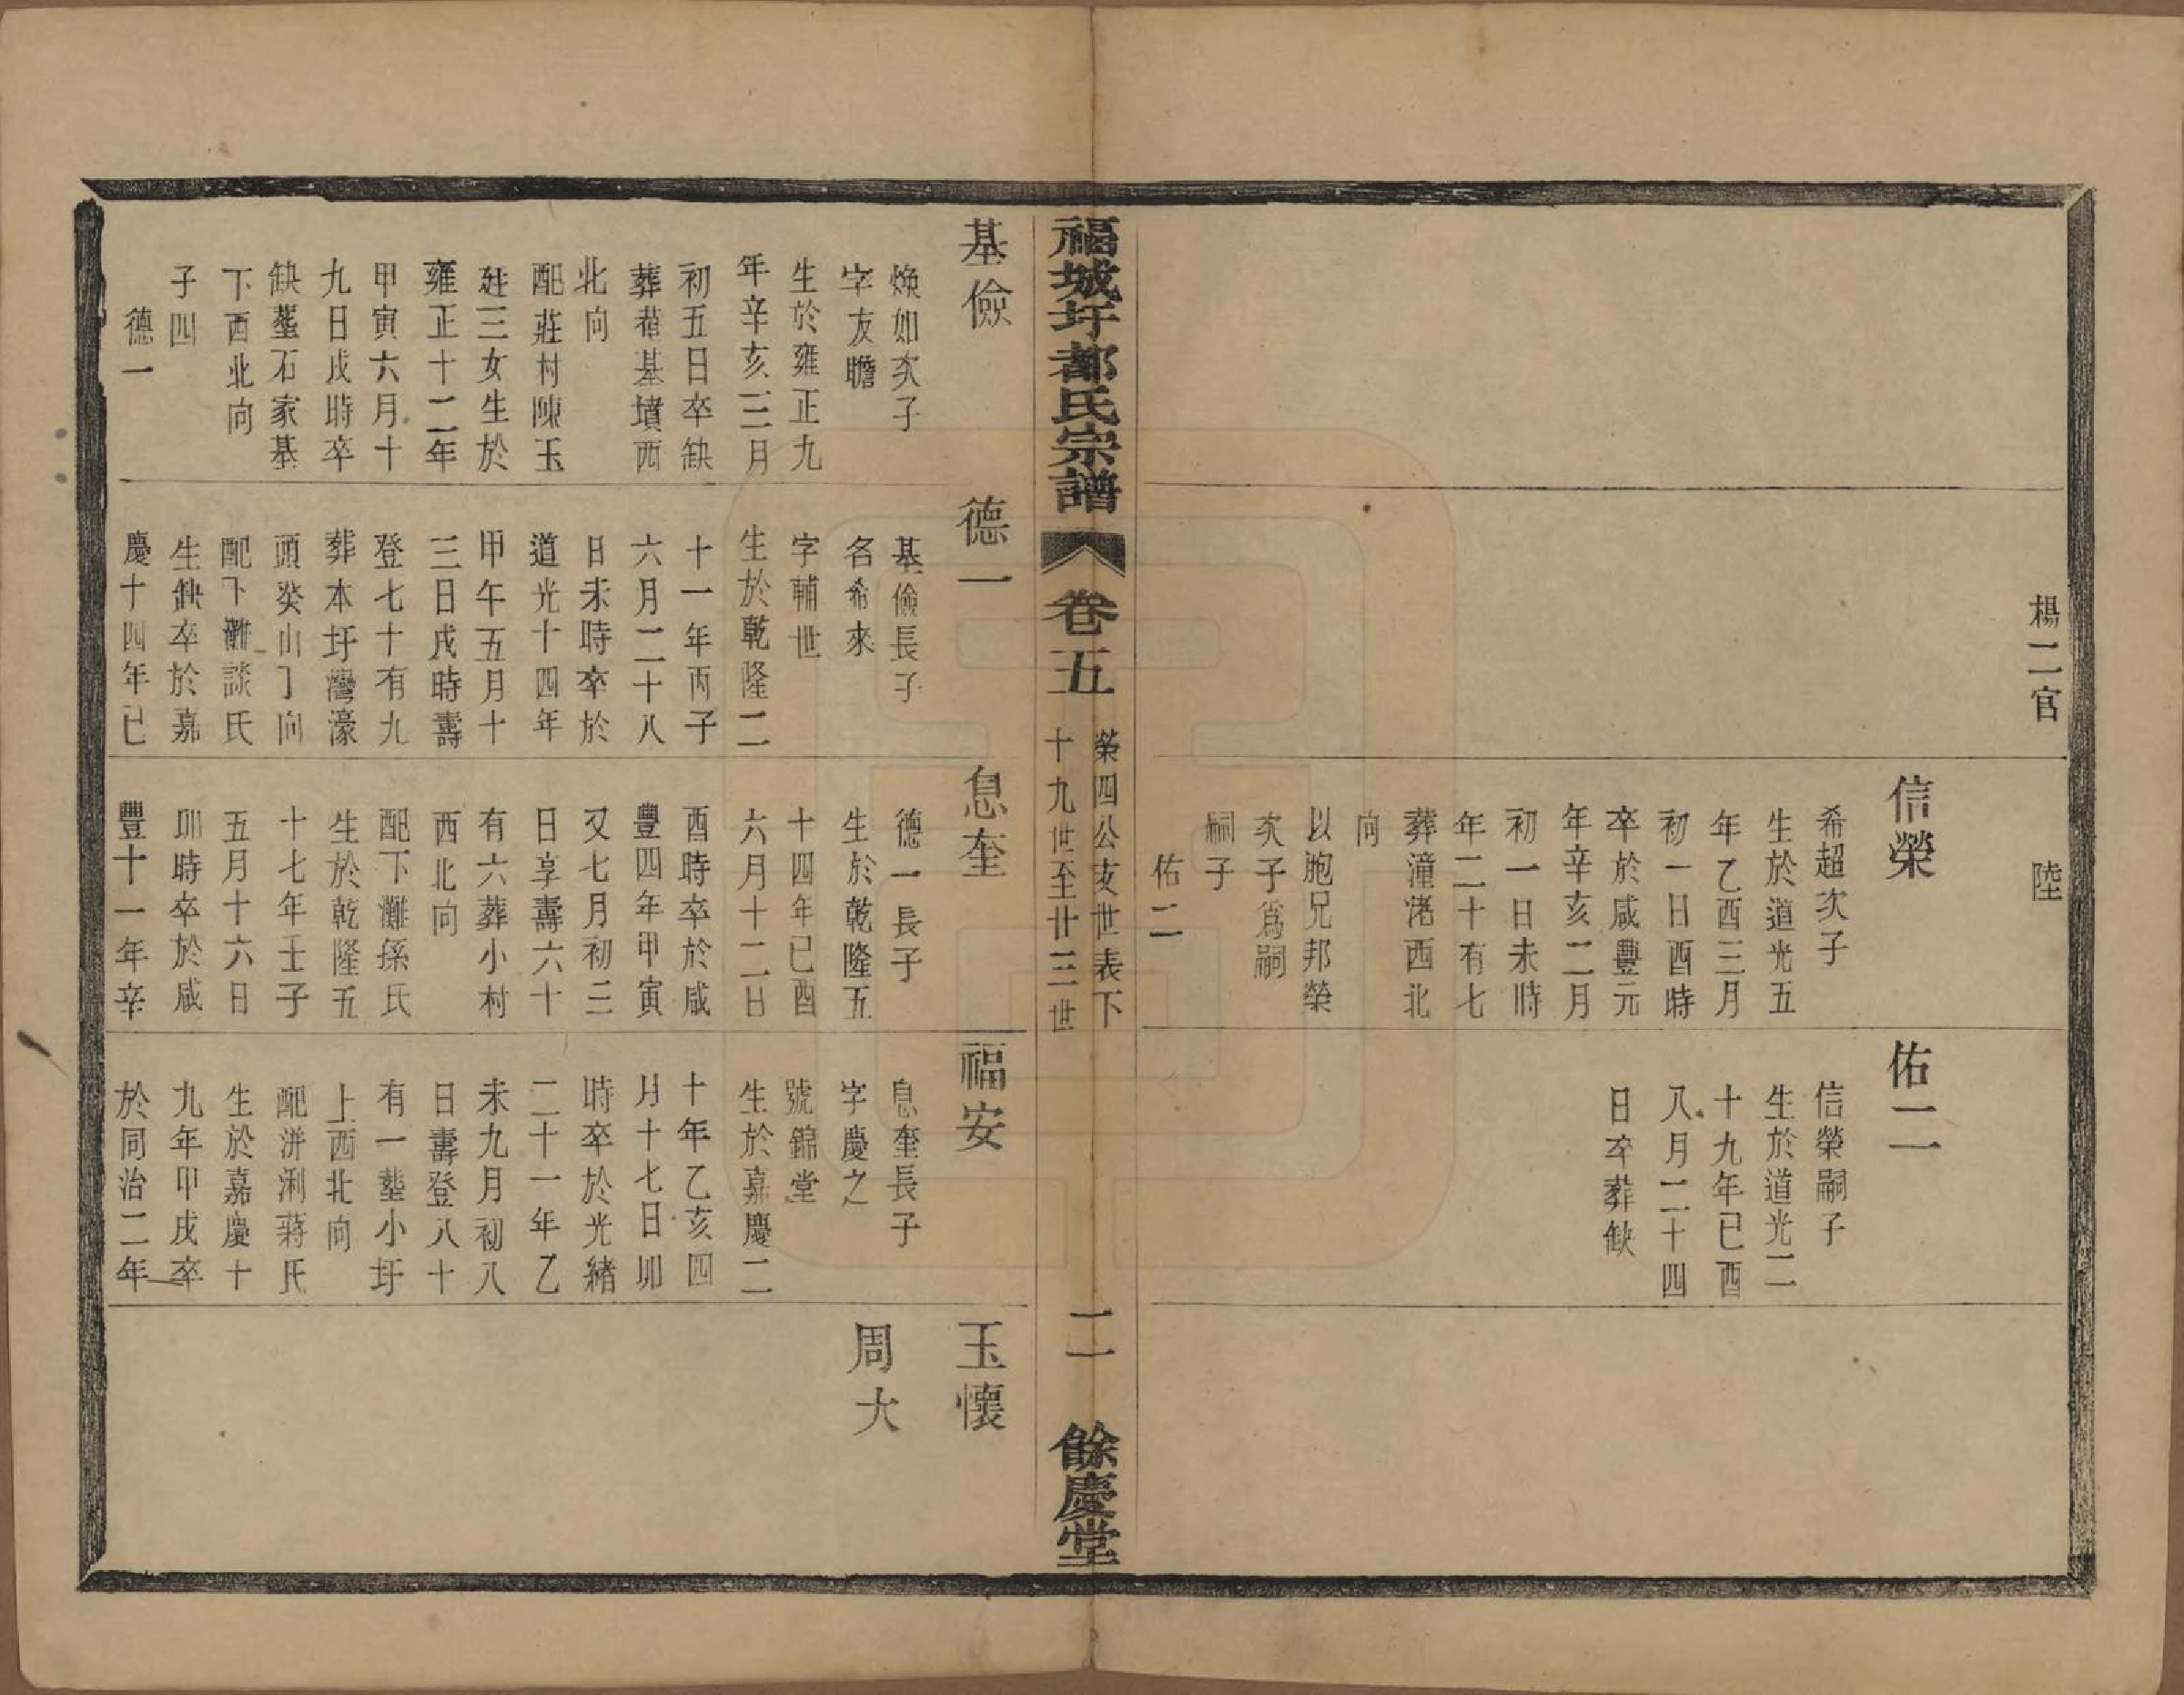 楊二官
陸
信榮
希超次子
生於道光五
年乙酉三月
初一日酉時
卒於咸豐元
年辛亥二月
初一日未時
年二十有七
葬潼渚西北
向
以胞兄邦榮
次子爲嗣
嗣子
佑二
佑二
信榮嗣子
生於道光二
十九年己酉
八月二十四
日卒葬缺
福城圩都氏宗譜
卷五
榮四公支世表下
十九世至廿三世
二
餘慶堂
基儉
煥如次子
字友瞻
生於雍正九
年辛亥三月
初五日卒缺
葬舊基墳西
北向
配莊村陳玉
廷三女生於
雍正十二年
甲寅六月十
九日戌時卒
缺塟石家墓
下西北向
子四
德一
德一
基儉長子
名希來
字輔世
生於乾隆二
十一年丙子
六月二十八
日未時卒於
道光十四年
甲午五月十
三日戌時壽
登七十有九
葬本圩灣濠
頭癸山丁向
配下灘談氏
生缺卒於嘉
慶十四年己
息奎
德一長子
生於乾隆五
十四年己酉
六月十二日
酉時卒於咸
豐四年甲寅
又七月初三
日享壽六十
有六葬小村
西北向
配下灘孫氏
生於乾隆五
十七年壬子
五月十六日
卯時卒於咸
豐十一年辛
福安
息奎長子
字慶之
號錦堂
生於嘉慶二
十年乙亥四
月十七日卯
時卒於光緒
二十一年乙
未九月初八
日壽登八十
有一塟小圩
上西北向
配洴浰蔣氏
生於嘉慶十
九年甲戌卒
於同治二年
玉懷
周大